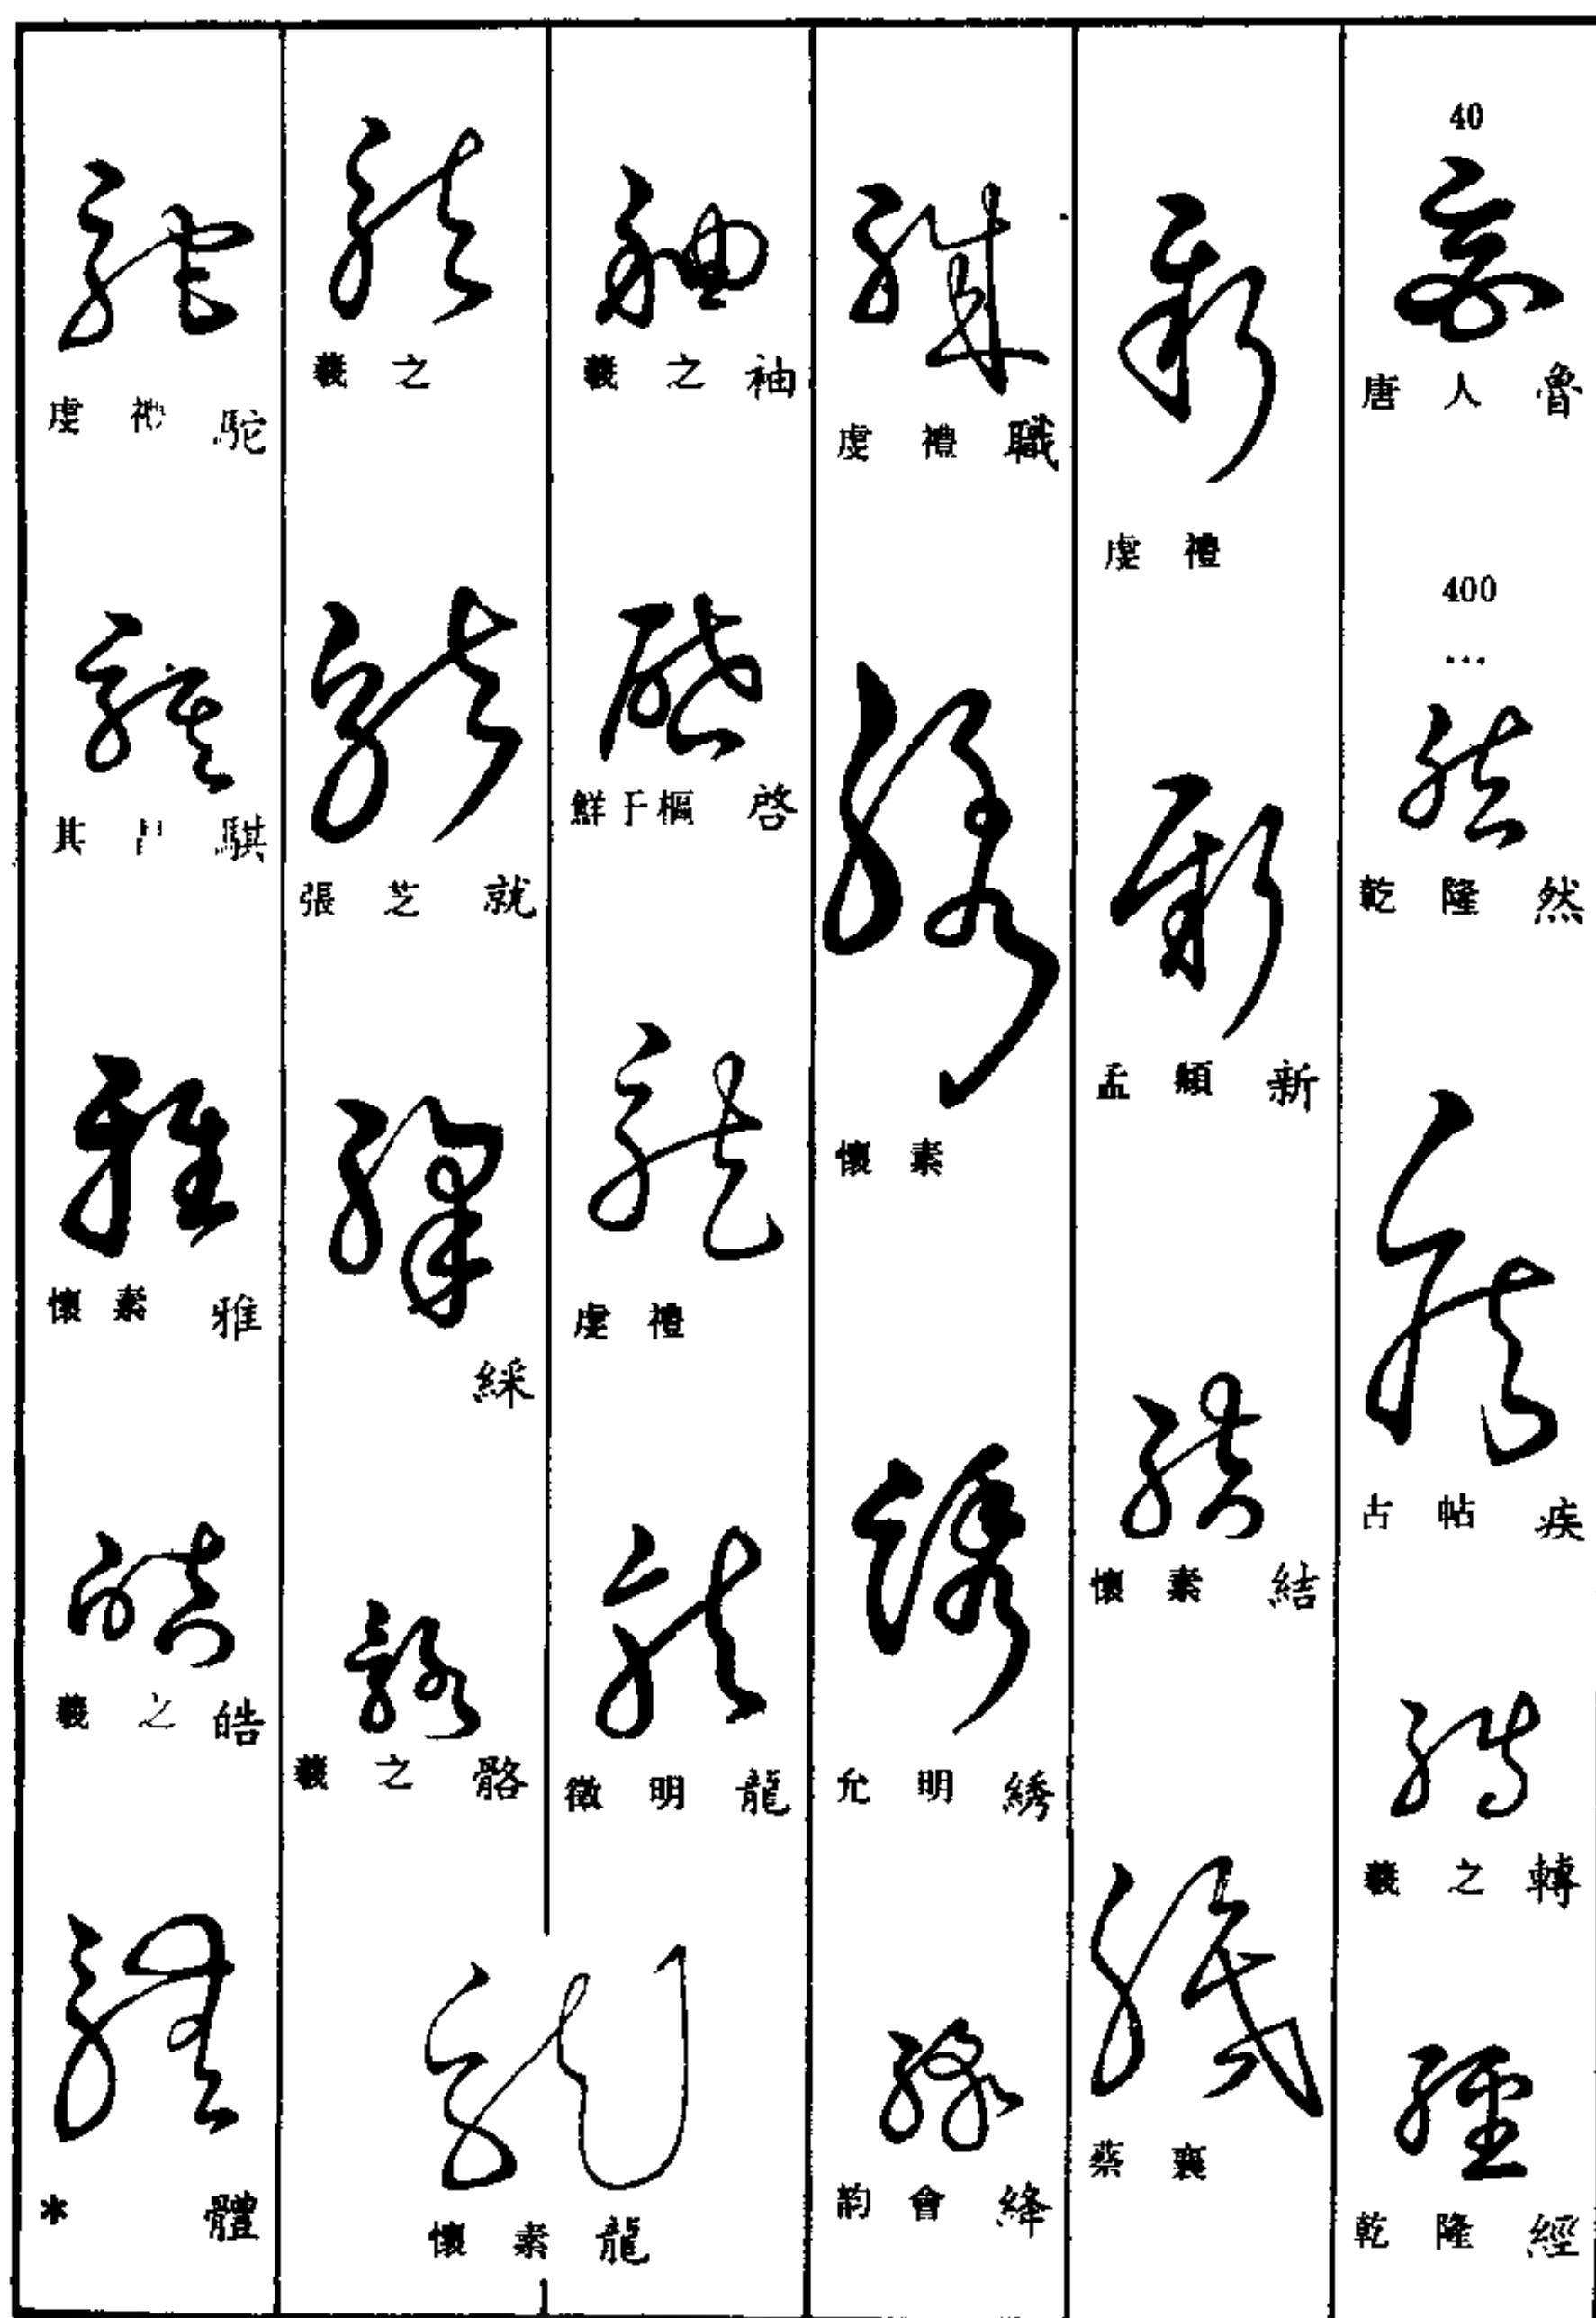 40
唐人 魯
400
…
乾隆 然
古帖 疾
羲之 轉
乾隆 經
虔禮
孟頫 新
懷素 結
蔡襄
虔禮 職
懷素
允明 綉
韵會 絳
羲之 袖
鮮于樞 啓
虔禮
徵明 龍
懷素 龍
羲之
張芝 就
綵
羲之 骼
虔禮 駝
其昌 騏
懷素 雅
羲之 皓
* 體